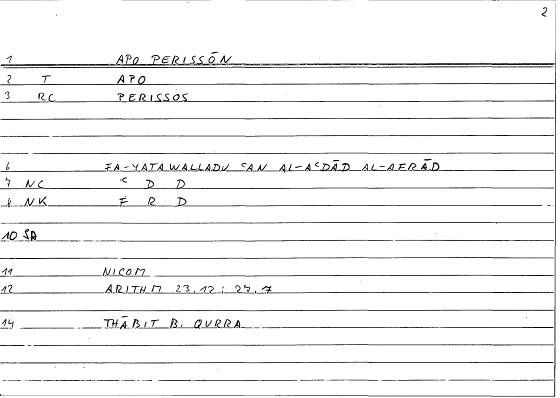 2
1 APO PERISSŌN
2 T APO
3 RC PERISSOS
6 FA-YATAWALLADU ʿAN AL-AʿDĀD AL-AFRĀD
7 NC ʿ D D
8 NK F R D
10 SA
11 NICOM
12 ARITHM 23.12 : 27.7
14 THĀBIT B. QURRA